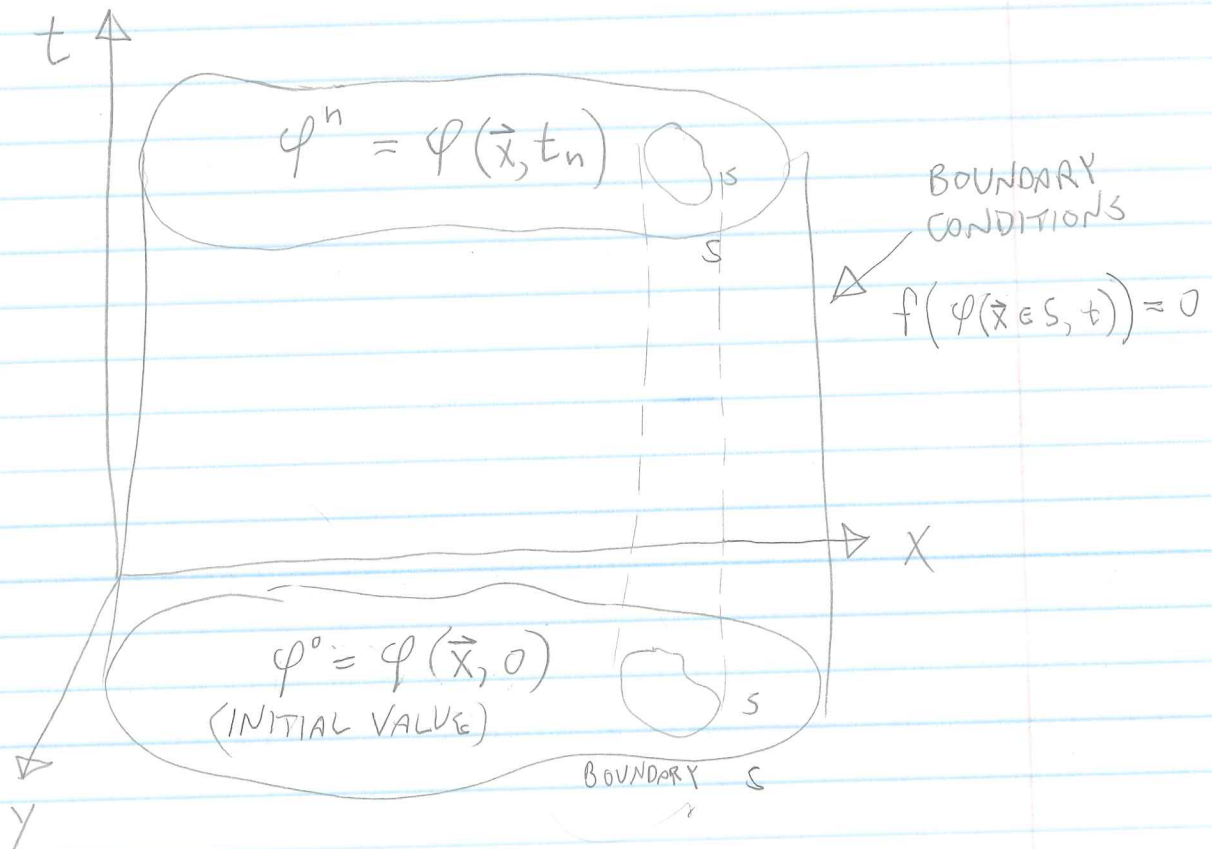 t
φⁿ = φ(x⃗, tₙ)
S
S
BOUNDARY
CONDITIONS
f(φ(x⃗ ∈ S, t)) = 0
X
φ⁰ = φ(x⃗, 0)
(INITIAL VALUE)
S
BOUNDARY S
y